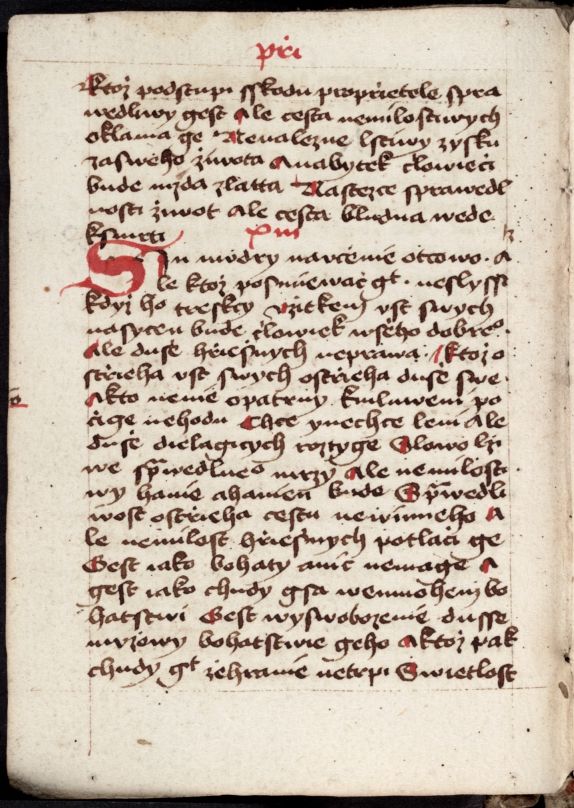 pri
Ktoz podstupi sskodu proprietele spra
wedliwy gest Ale cesta nemilostiwych
oklama ge Nenalezne lstiwy zysku
zasweho ziwota Anabytek clowieci
bude mzda zlatta Nastezce sprawedl
nosti ziwot Ale cesta bludna wede
ksmrti xiii
Syn mudry naucenie otcowo . A
le ktoz posmiewac gt . neslyssi
kdyz ho treskcy Uzitkem ust swych
nasycen bude clowiek wsseho dobreo .
Ale duse hrziesnych neprawa . Ktoz o
strzieha ust swych ostrzieha duse swe .
Akto nenie opatrny kmluweni po
cige nehodu Chce ynechce leni Ale
duse dielagicych roztyge Slowo lzi
we sprawedlueo mrzy Ale nemilosti
wy hanie ahanien bude Sprawedli
wost ostrzieha cestu newinneho A
le nemilost hrziesnych potlaci ge
Gest iako bohaty anic nemage A
gest iako chudy gsa wemnohem bo
hatstwi Gest wyswobozenie dusse
muzowy bohatstwie geho Aktoz pak
chudy gt zehranie netrpi Swietlost